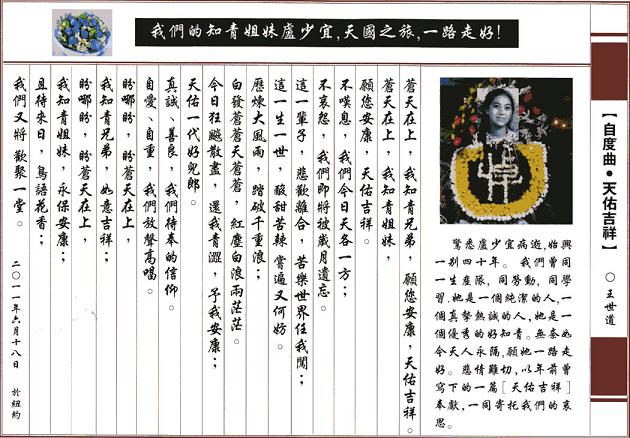 我們的知青姐妹盧少宜,天國之旅,一路走好!
【自度曲•天佑吉祥】 ○ 王世道
奠
驚悉盧少宜病逝,始興
一别四十年。 我們曾同
一生産隊, 同勞動, 同學
習,她是一個純潔的人,一
個真摯熱誠的人,她是一
個優秀的好知青。無奈如
今天人永隔,願她一路走
好。悲情難切,以年前曾
寫下的一篇[天佑吉祥]
奉獻,一同寄托我們的哀
思。
蒼天在上,我知青兄弟,願您安康,天佑吉祥。
蒼天在上,我知青姐妹,
願您安康,天佑吉祥。
不嘆息,我們今日天各一方;
不哀怨,我們即將被歲月遺忘。
這一輩子,悲歡離合,苦樂世界任我闖;
這一生一世,酸甜苦辣 嘗遍又何妨。
歷煉大風雨,踏破千重浪;
白發蒼蒼天蒼蒼,紅塵白浪兩茫茫。
今日狂飈散盡,還我青澀,予我安康;
天佑一代好兒郎。
真誠、善良,我們待奉的信仰。
自愛、自重,我們放聲高唱。
盼哪盼,盼蒼天在上,
我知青兄弟,如意吉祥;
盼哪盼,盼蒼天在上,
我知青姐妹,永保安康;
且待來日,鳥語花香;
我們又將 歡聚一堂。
二〇一一年六月十八日 於紐約